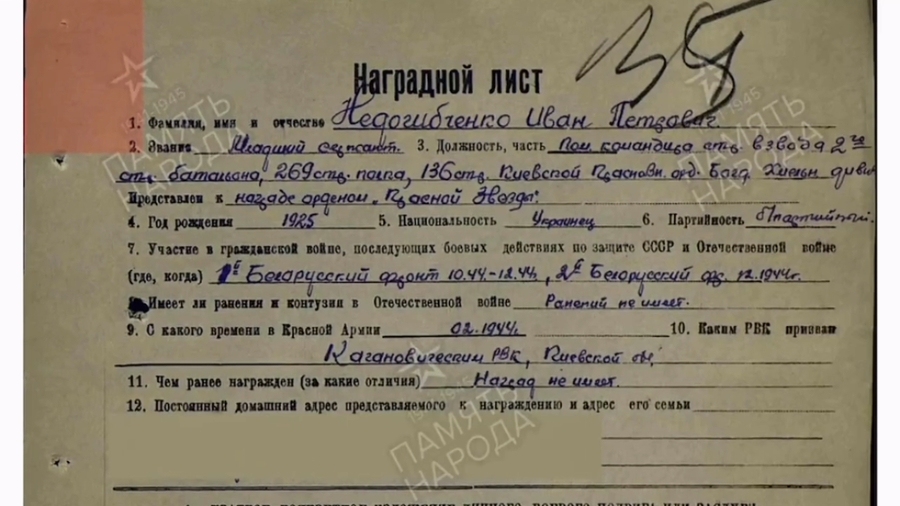 Наградной лист
1. Фамилия, имя и отчество Недогибченко Иван Петрович.
2. Звание Младший сержант. 3. Должность, часть Пом. командира стр. взвода 2го
стр. батальона, 269 стр. полка, 136 стр. Киевской Краснозн. орд. Богд. Хмельн дивиз
Представлен к награде орденом „Красной Звезды"
4. Год рождения 1925 5. Национальность Украинец 6. Партийность б/партийный.
7. Участие в гражданской войне, последующих боевых действиях по защите СССР и Отечественной войне
(где, когда) 1й Белорусский фронт 10.44-12.44, 2й Белорусский фр. 12.1944г.
Имеет ли ранения и контузия в Отечественной войне Ранений не имеет.
9. С какого времени в Красной Армии 02.1944г. 10. Каким РВК призван
Кагановическим РВК, Киевской обл.
11. Чем ранее награжден (за какие отличия) Наград не имеет.
12. Постоянный домашний адрес представляемого к награждению и адрес его семьи
ПАМЯТЬ НАРОДА
ПАМЯТЬ НАРОДА
ПАМЯТЬ НАРОДА